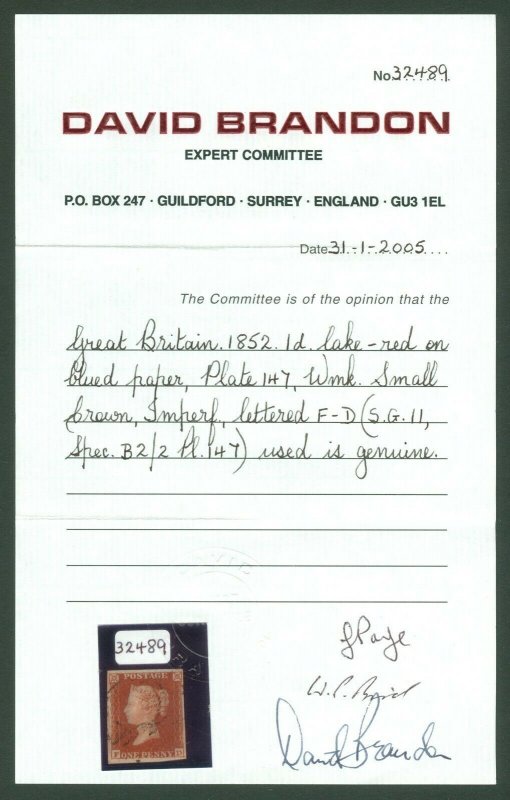 No.32489
DAVID BRANDON
EXPERT COMMITTEE
P.O. BOX 247 · GUILDFORD · SURREY · ENGLAND · GU3 1EL
Date 31-1-2005
The Committee is of the opinion that the
Great Britain. 1852. 1d. lake-red on
blued paper, Plate 147, Wmk. Small
Crown, Imperf, lettered F-D (S.G. 11,
Spec. B2/2 Pl. 147) used is genuine.
W.C. 
David Brandon
32489
POSTAGE
F ONE PENNY D